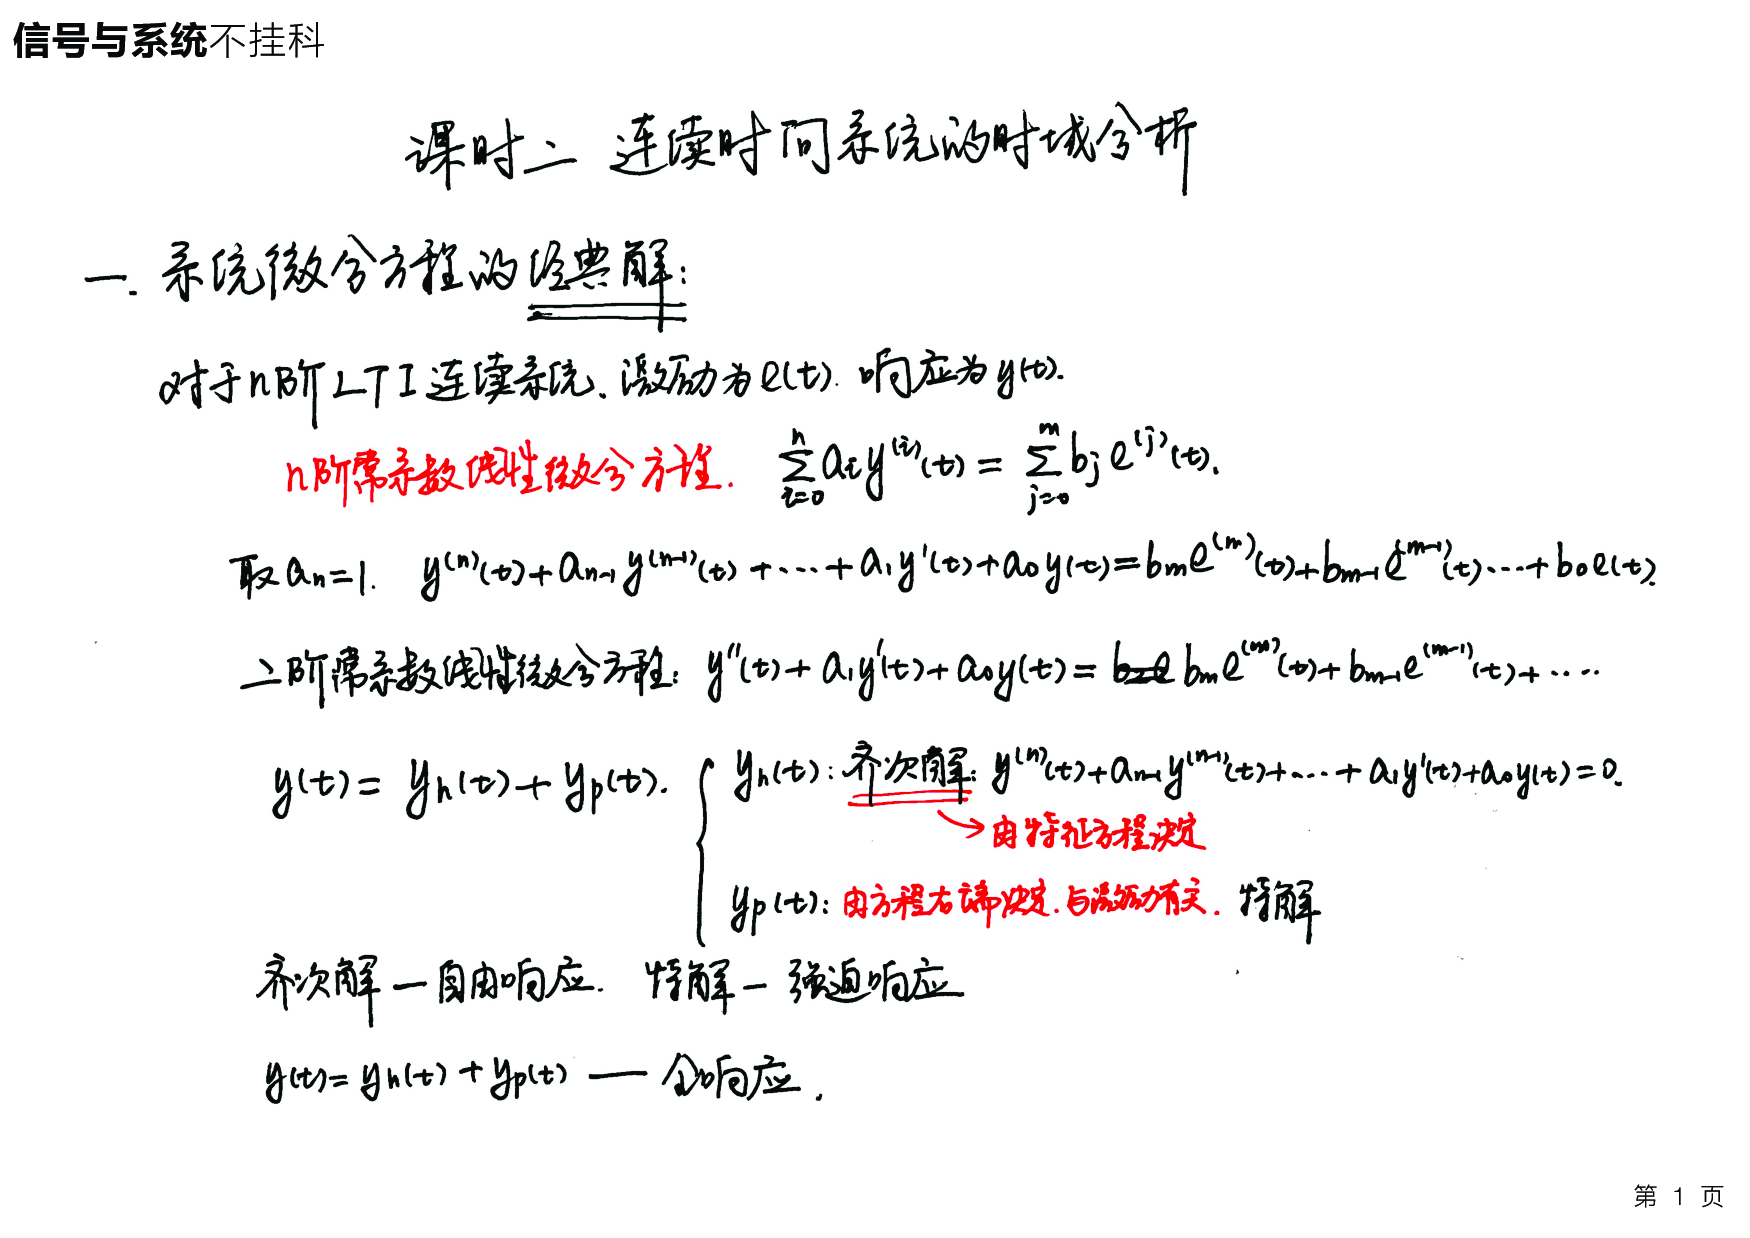 信号与系统不挂科
课时二 连续时间系统的时域分析
一. 系统微分方程的经典解:
对于n阶LTI连续系统.激励为e(t).响应为y(t).
n阶常系数线性微分方程. $\sum_{i=0}^{n} a_i y^{(i)}(t) = \sum_{j=0}^{m} b_j e^{(j)}(t).$
取 $a_n=1.$ $y^{(n)}(t)+a_{n-1}y^{(n-1)}(t)+\cdots+a_1y'(t)+a_0y(t)=b_me^{(m)}(t)+b_{m-1}e^{(m-1)}(t)\cdots+b_0e(t).$
二阶常系数线性微分方程: $y''(t)+a_1y'(t)+a_0y(t)=b_me^{(m)}(t)+b_{m-1}e^{(m-1)}(t)+\cdots$
$y(t)=y_h(t)+y_p(t).$ { $y_h(t):$ 齐次解: $y^{(n)}(t)+a_{n-1}y^{(n-1)}(t)+\cdots+a_1y'(t)+a_0y(t)=0.$
→由特征方程决定
$y_p(t):$ 由方程右端决定.与激励有关. 特解
齐次解—自由响应. 特解—强迫响应
$y(t)=y_h(t)+y_p(t)$ — 全响应.
第 1 页